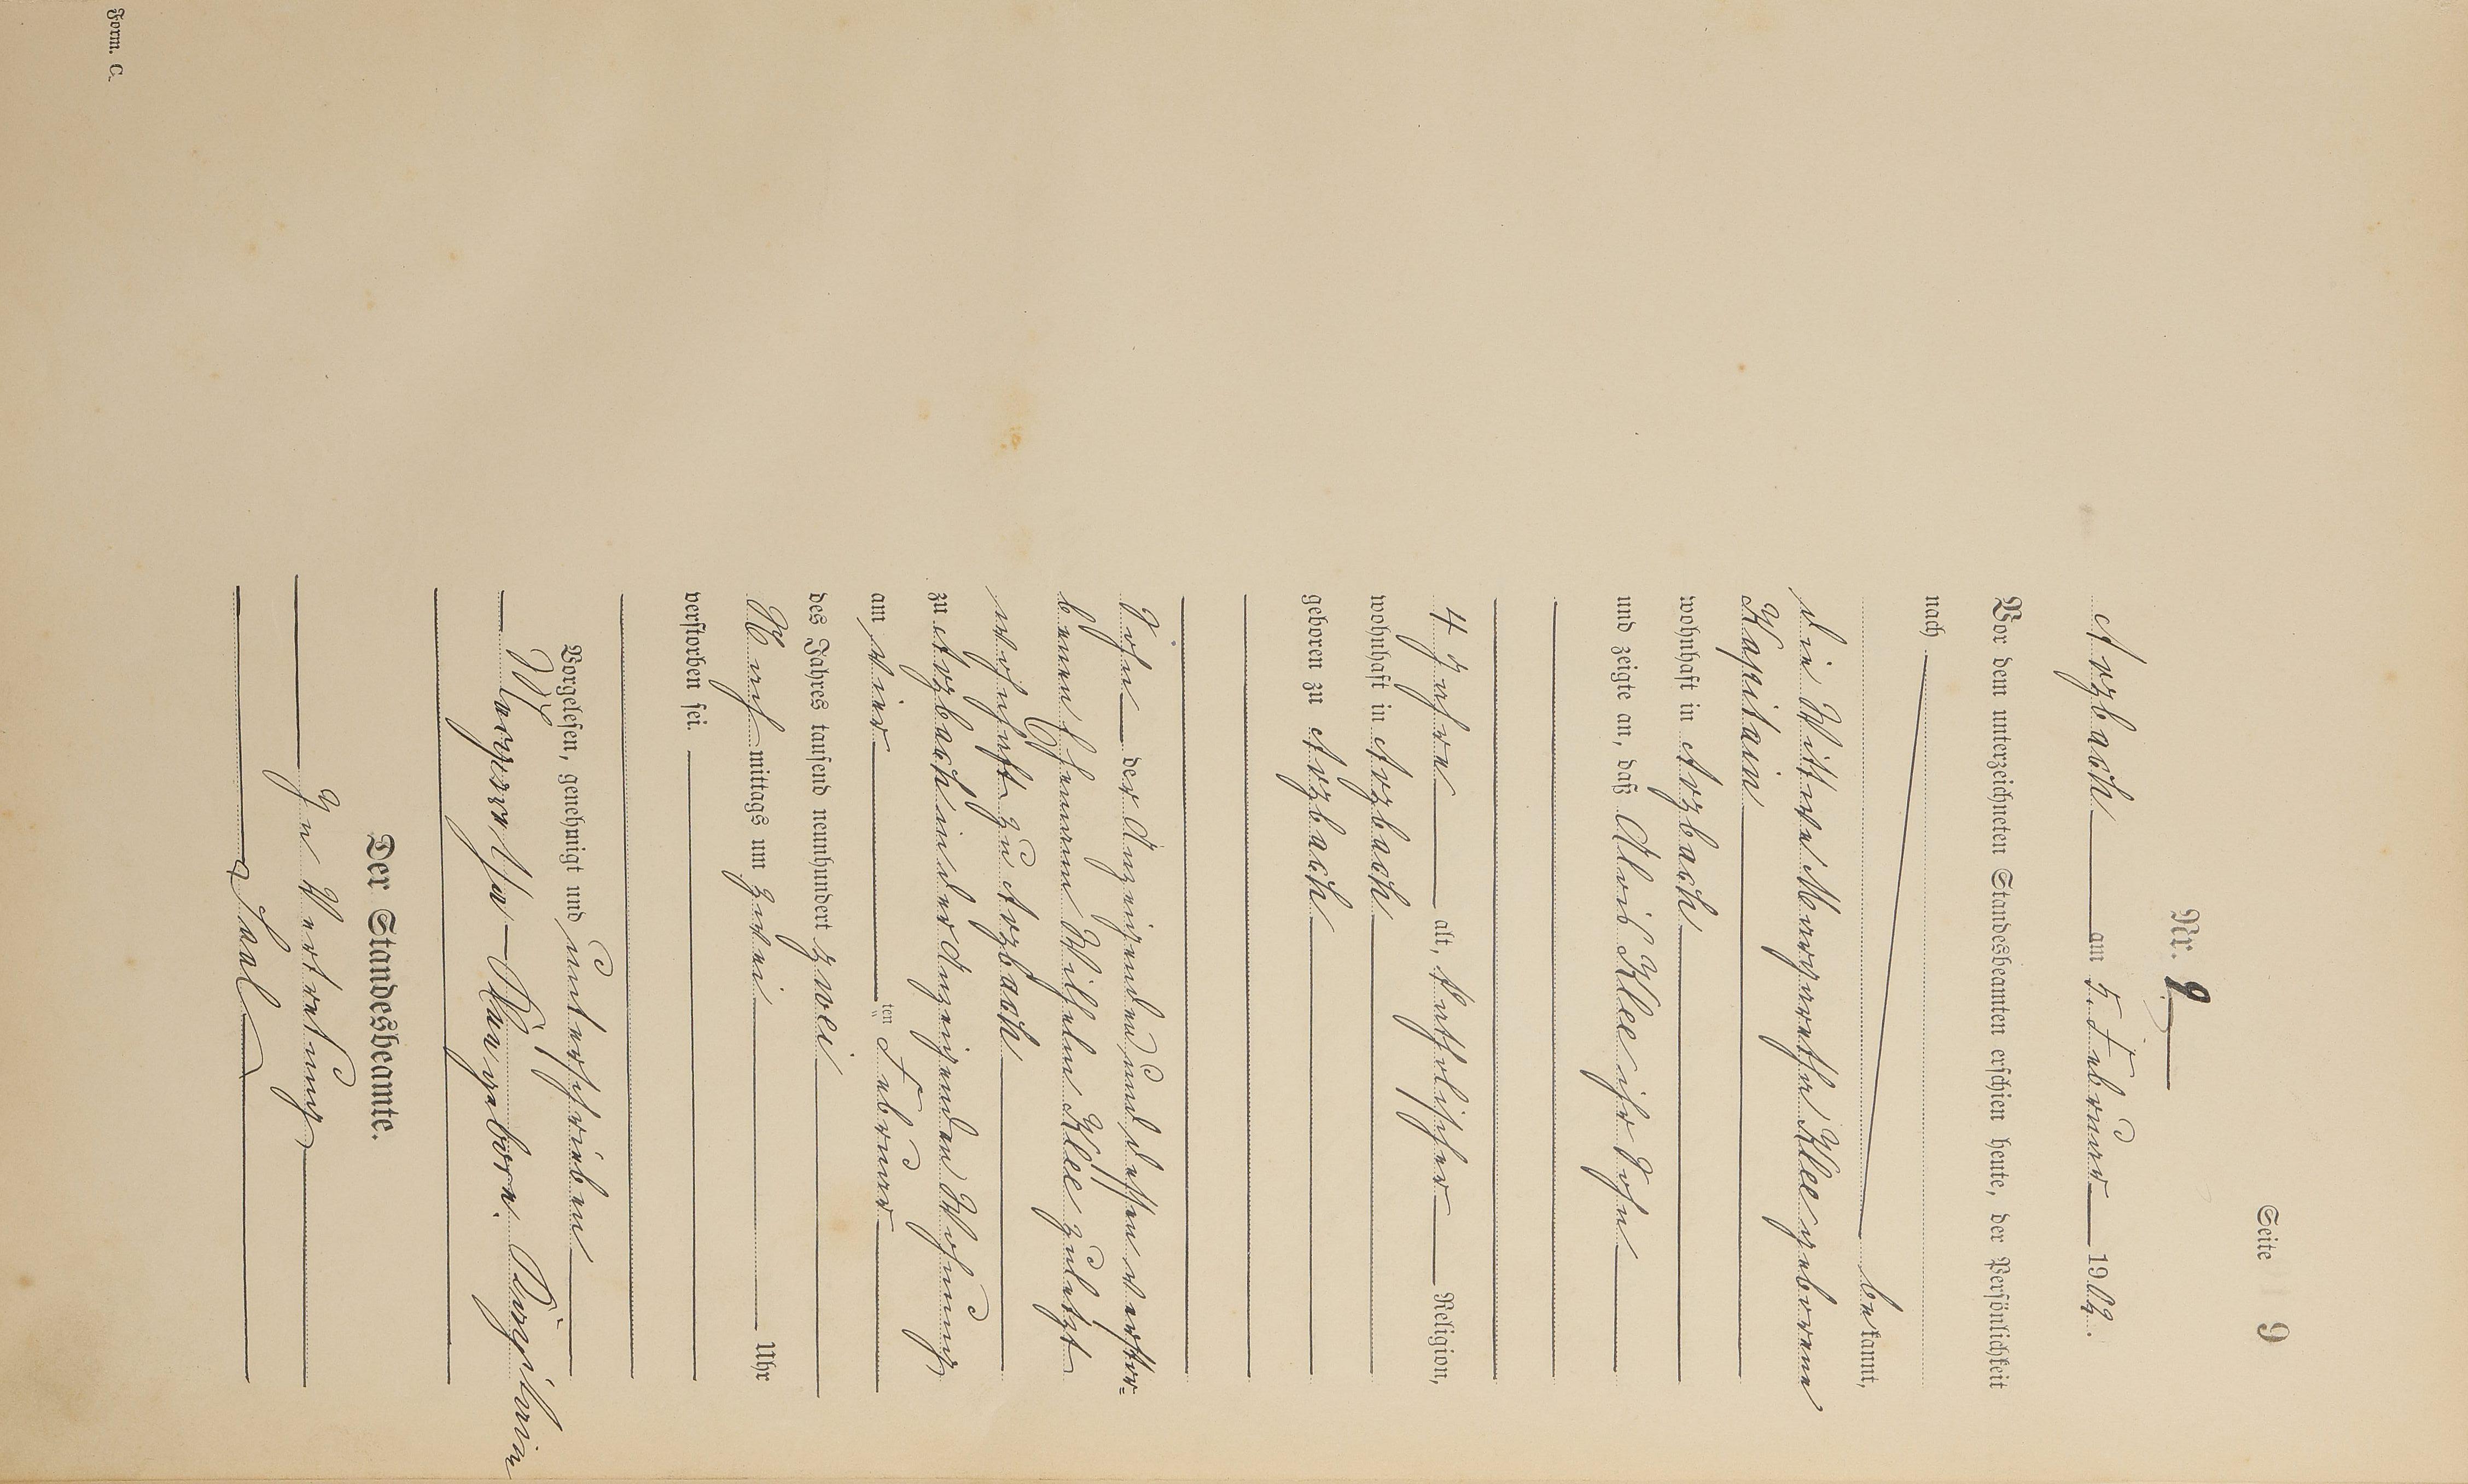 Seite 9
Nr. 9
Arzbach am 5. Februar 1902.
Vor dem unterzeichneten Standesbeamten erschien heute, der Persönlichkeit
nach
bekannt,
die Witwe Margaretha Klee geborene
Kapitain
wohnhaft in Arzbach
und zeigte an, daß Alois Klee ihr Sohn
4 Jahre alt, katholischer Religion,
wohnhaft in Arzbach
geboren zu Arzbach
Sohn der Anzeigenden und dessen verstor-
benen Ehemann Wilhelm Klee zuletzt
wohnhaft zu Arzbach
zu Arzbach in der Anzeigenden Wohnung
am vier ten Februar
des Jahres tausend neunhundert zwei
Nach mittags um zwei Uhr
verstorben sei.
Vorgelesen, genehmigt und unterschrieben
Der Standesbeamte.
In Vertretung
Saal
Form. C.